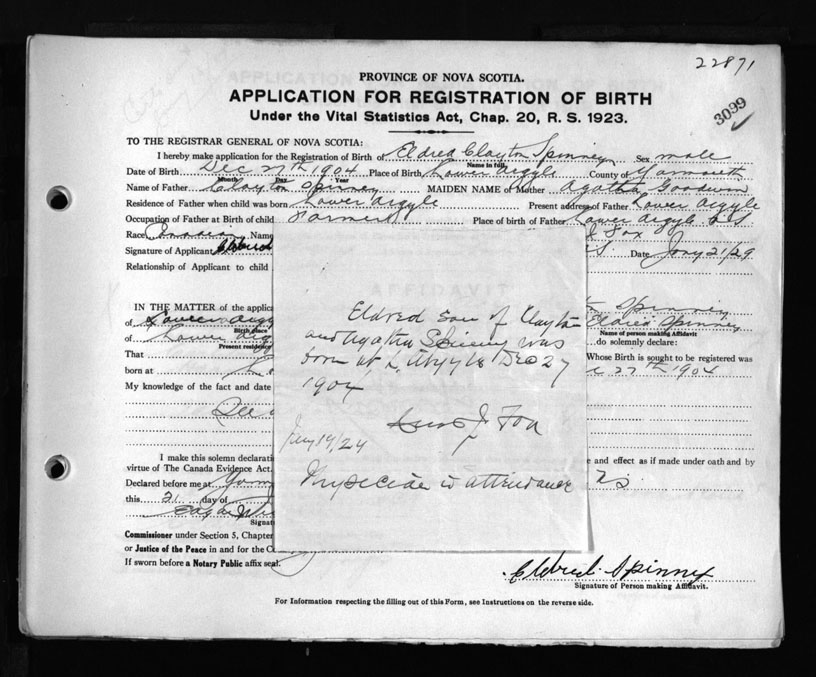 22871
PROVINCE OF NOVA SCOTIA.
APPLICATION FOR REGISTRATION OF BIRTH
3099
Under the Vital Statistics Act, Chap. 20, R. S. 1923.
TO THE REGISTRAR GENERAL OF NOVA SCOTIA:
I hereby make application for the Registration of Birth of Eldred Clayton Spinney Sex male
Name in full
Date of Birth Dec 27th 1904 Place of Birth Lower Argyle County of Yarmouth
Month Day Year
Name of Father Clayton Spinney MAIDEN NAME of Mother Agatha Goodwin
Residence of Father when child was born Lower Argyle Present address of Father Lower Argyle
Occupation of Father at Birth of child Farmer Place of birth of Father Lower Argyle N S
Race Canadian Name Fox
Signature of Applicant Eldred Date Jany 21/29
Relationship of Applicant to child
AFFIDAVIT
IN THE MATTER of the applica Spinney
of Lower Argy Eldred Spinney
Birth place Name of person making Affidavit
of Lower do solemnly declare:
Present residence
That Whose Birth is sought to be registered was
born at 27th 1904
My knowledge of the fact and date
See
I make this solemn declaratio e and effect as if made under oath and by
virtue of The Canada Evidence Act.
Declared before me at N.S.
this 21 day of
Signatu
Commissioner under Section 5, Chapter
or Justice of the Peace in and for the C
If sworn before a Notary Public affix seal.
Eldred Spinney
Signature of Person making Affidavit.
For Information respecting the filling out of this Form, see Instructions on the reverse side.
Eldred son of Clayton
and Agatha Spinney was
born at L. Argyle Dec 27
1904
J. Fox
Jany 19/29
Physician in attendance